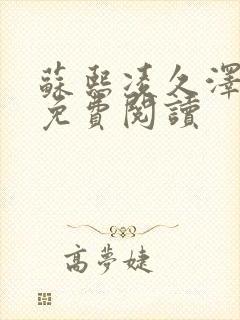 蘇熙凌久澤
免費閱讀
高夢婕